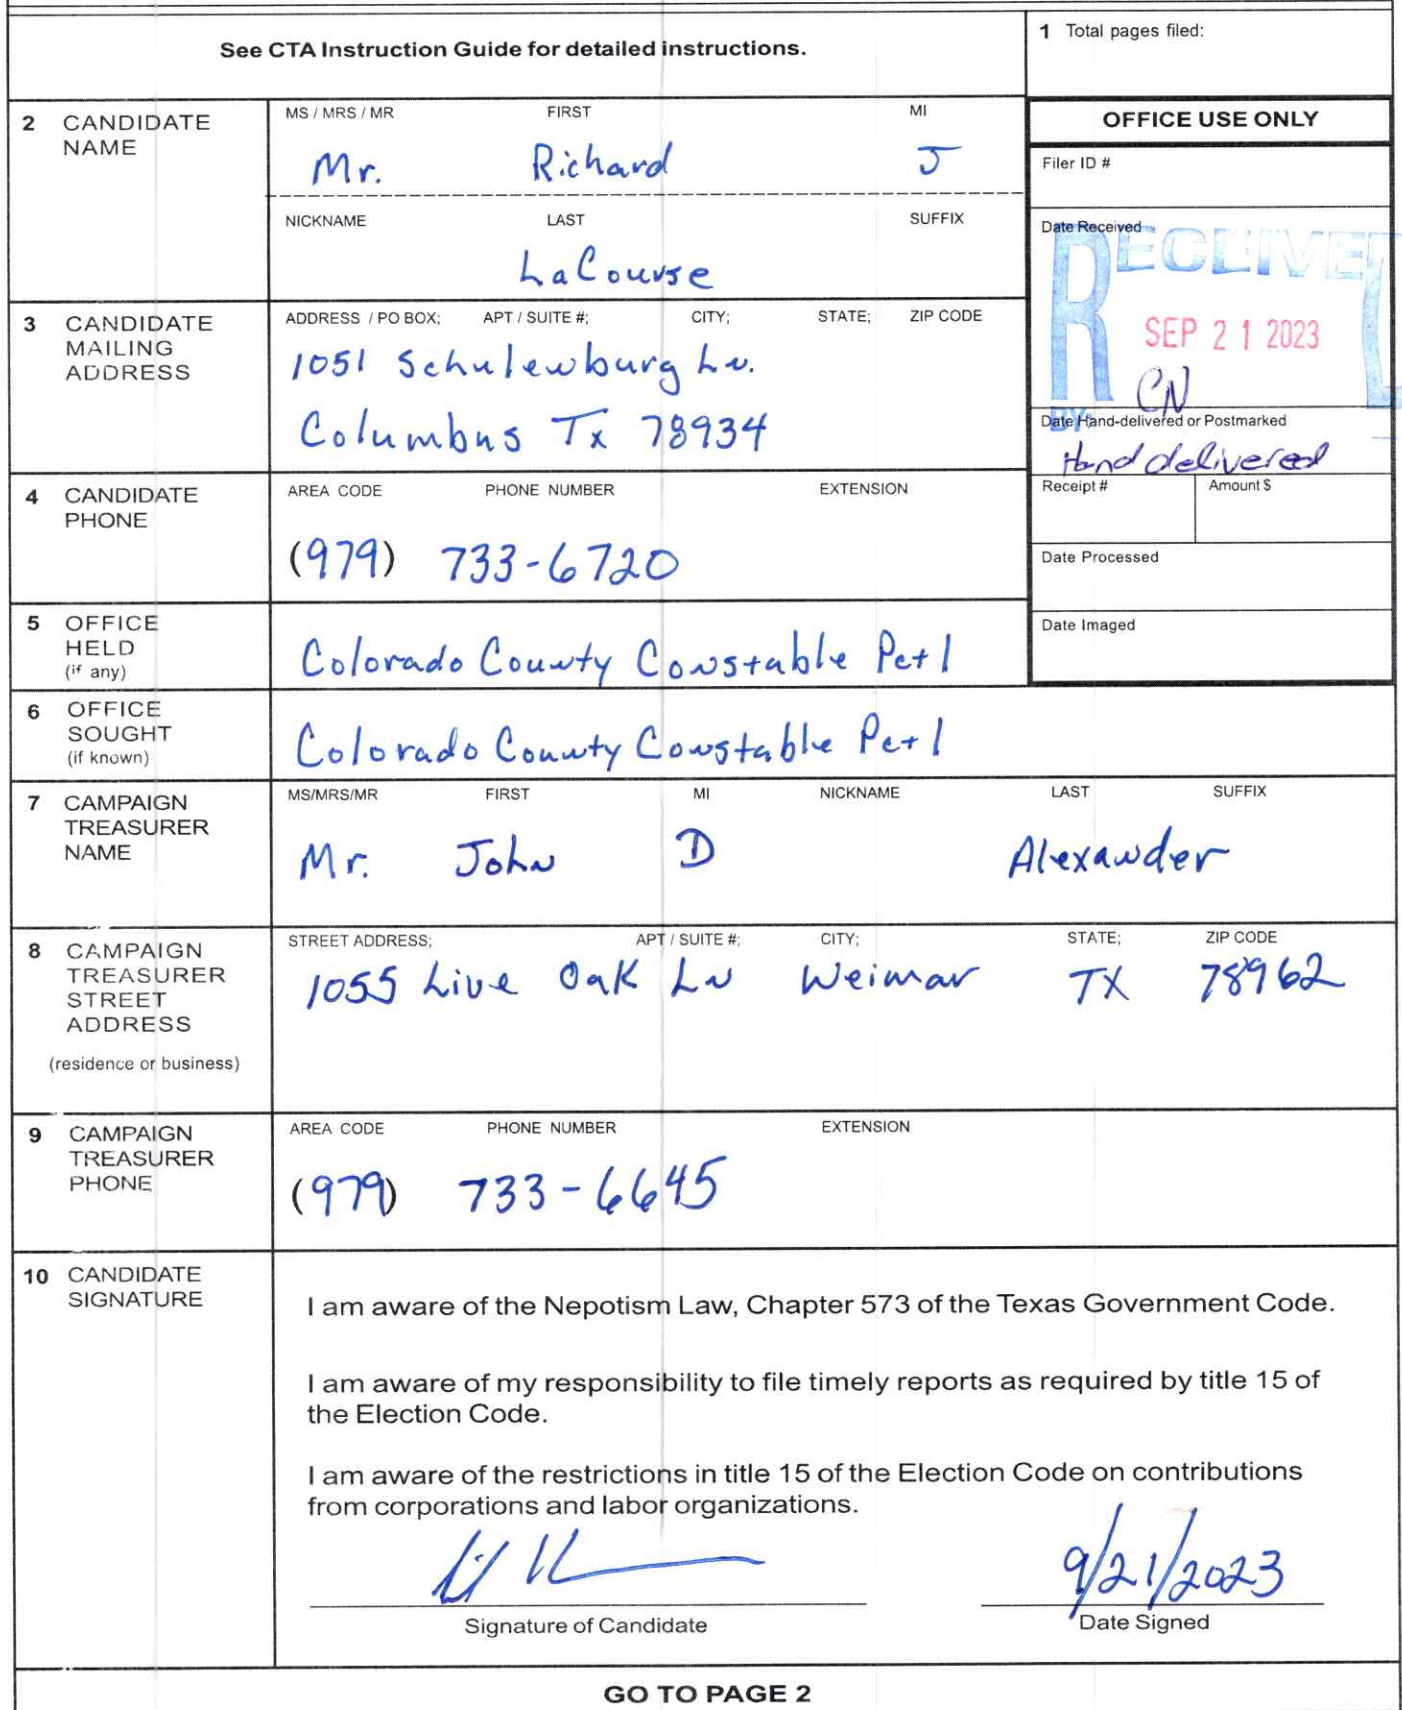 See CTA Instruction Guide for detailed instructions.
1 Total pages filed:
2 CANDIDATE NAME
MS / MRS / MR FIRST MI
Mr. Richard J
NICKNAME LAST SUFFIX
LaCourse
OFFICE USE ONLY
Filer ID #
Date Received
RECEIVED
SEP 21 2023
CN
BY:
Date Hand-delivered or Postmarked
Hand delivered
Receipt # Amount $
Date Processed
Date Imaged
3 CANDIDATE MAILING ADDRESS
ADDRESS / PO BOX; APT / SUITE #; CITY; STATE; ZIP CODE
1051 Schulenburg Ln.
Columbus Tx 78934
4 CANDIDATE PHONE
AREA CODE PHONE NUMBER EXTENSION
(979) 733-6720
5 OFFICE HELD (if any)
Colorado County Constable Pct 1
6 OFFICE SOUGHT (if known)
Colorado County Constable Pct 1
7 CAMPAIGN TREASURER NAME
MS/MRS/MR FIRST MI NICKNAME LAST SUFFIX
Mr. John D Alexander
8 CAMPAIGN TREASURER STREET ADDRESS
(residence or business)
STREET ADDRESS; APT / SUITE #; CITY; STATE; ZIP CODE
1055 Live Oak Ln Weimar TX 78962
9 CAMPAIGN TREASURER PHONE
AREA CODE PHONE NUMBER EXTENSION
(979) 733-6645
10 CANDIDATE SIGNATURE
I am aware of the Nepotism Law, Chapter 573 of the Texas Government Code.
I am aware of my responsibility to file timely reports as required by title 15 of
the Election Code.
I am aware of the restrictions in title 15 of the Election Code on contributions
from corporations and labor organizations.
9/21/2023
Signature of Candidate Date Signed
GO TO PAGE 2